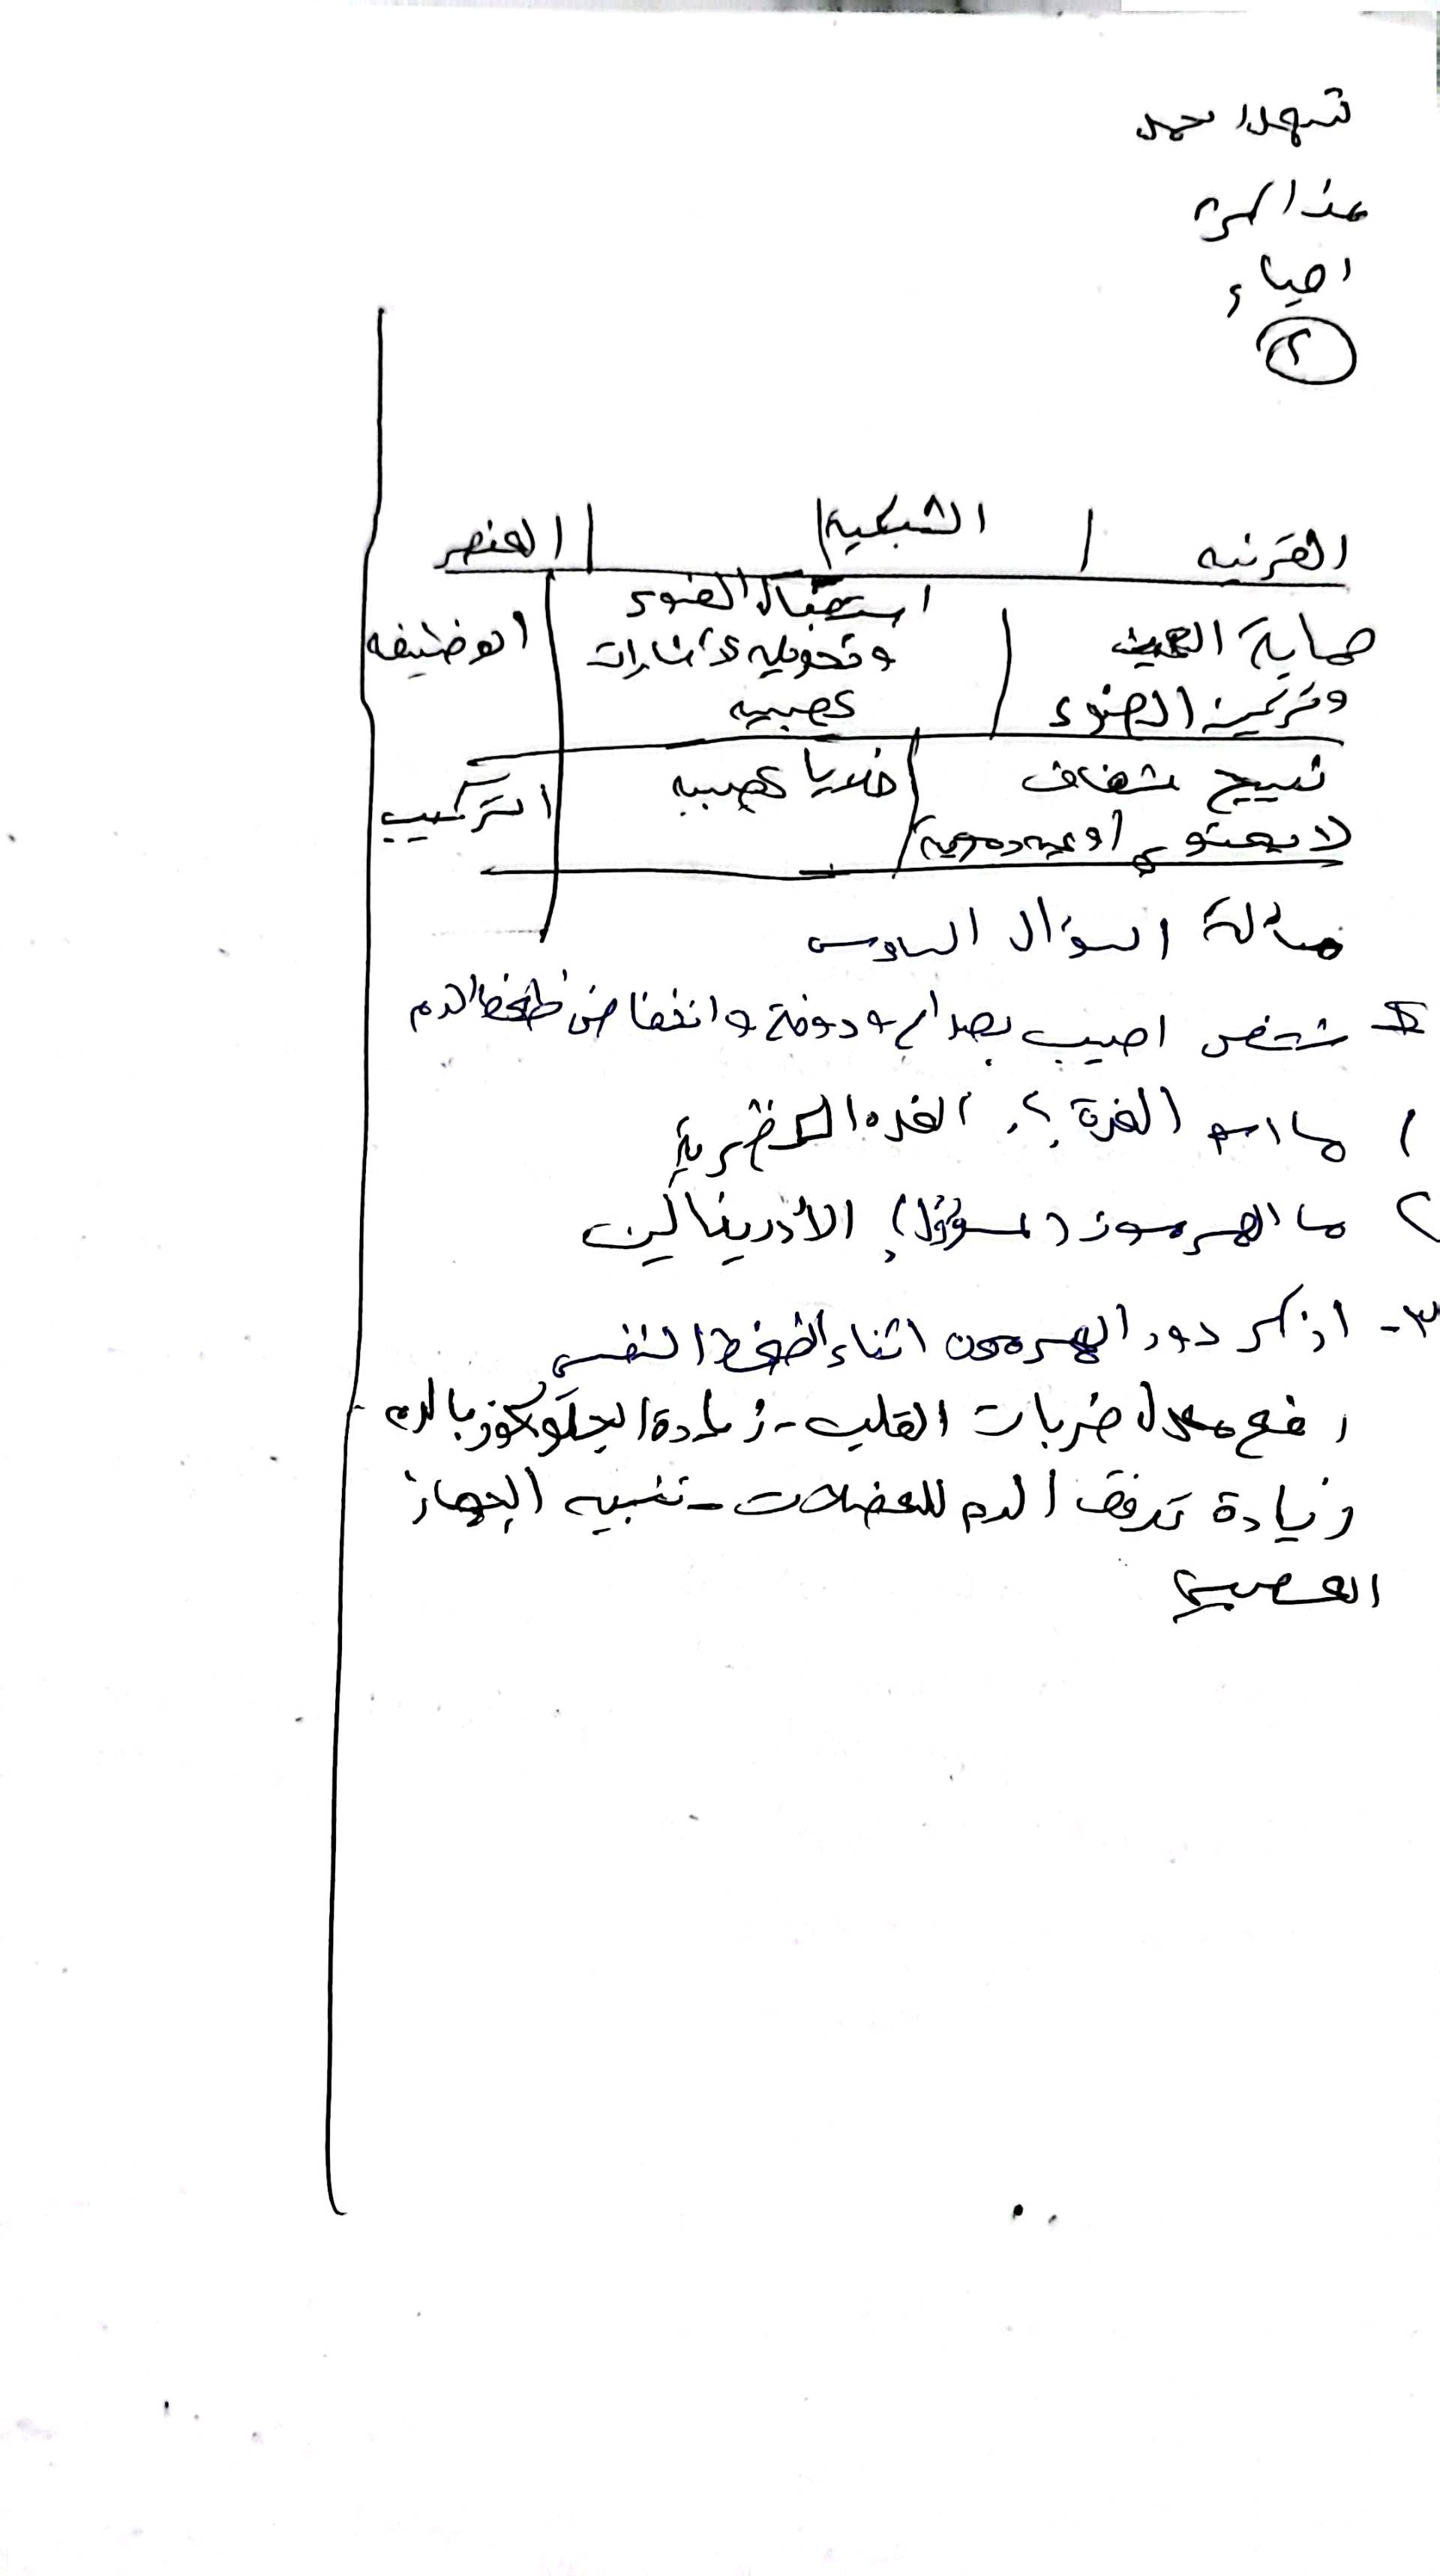 احياء
٢
القرنيه | الشبكية | العنصر
حماية العين | استقبال الضوء | الوظيفه
وتركيز الضوء | وتحويله لأشارات
عصبيه
نسيج شفاف | خلايا عصبيه | التركيب
لا يحتوي أوعيه دموية
السؤال السادس
شخص اصيب بصداع ودوخة وانخفاض ظغط الدم
١ ما اسم الغدة؟ الغده الكظرية
٢ ما الهرمون (المسؤول) الأدرينالين
٣- اذكر دور الهرمون اثناء الضغط النفسي
رفع معدل ضربات القلب - زيادة الجلوكوز بالدم
زيادة تدفق الدم للعضلات - تنبيه الجهاز
العصبي